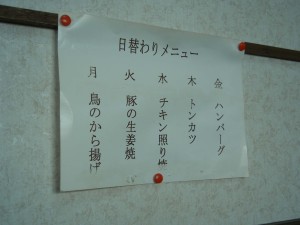 日替わりメニュー
月 鳥のから揚げ
火 豚の生姜焼
水 チキン照り焼
木 トンカツ
金 ハンバーグ